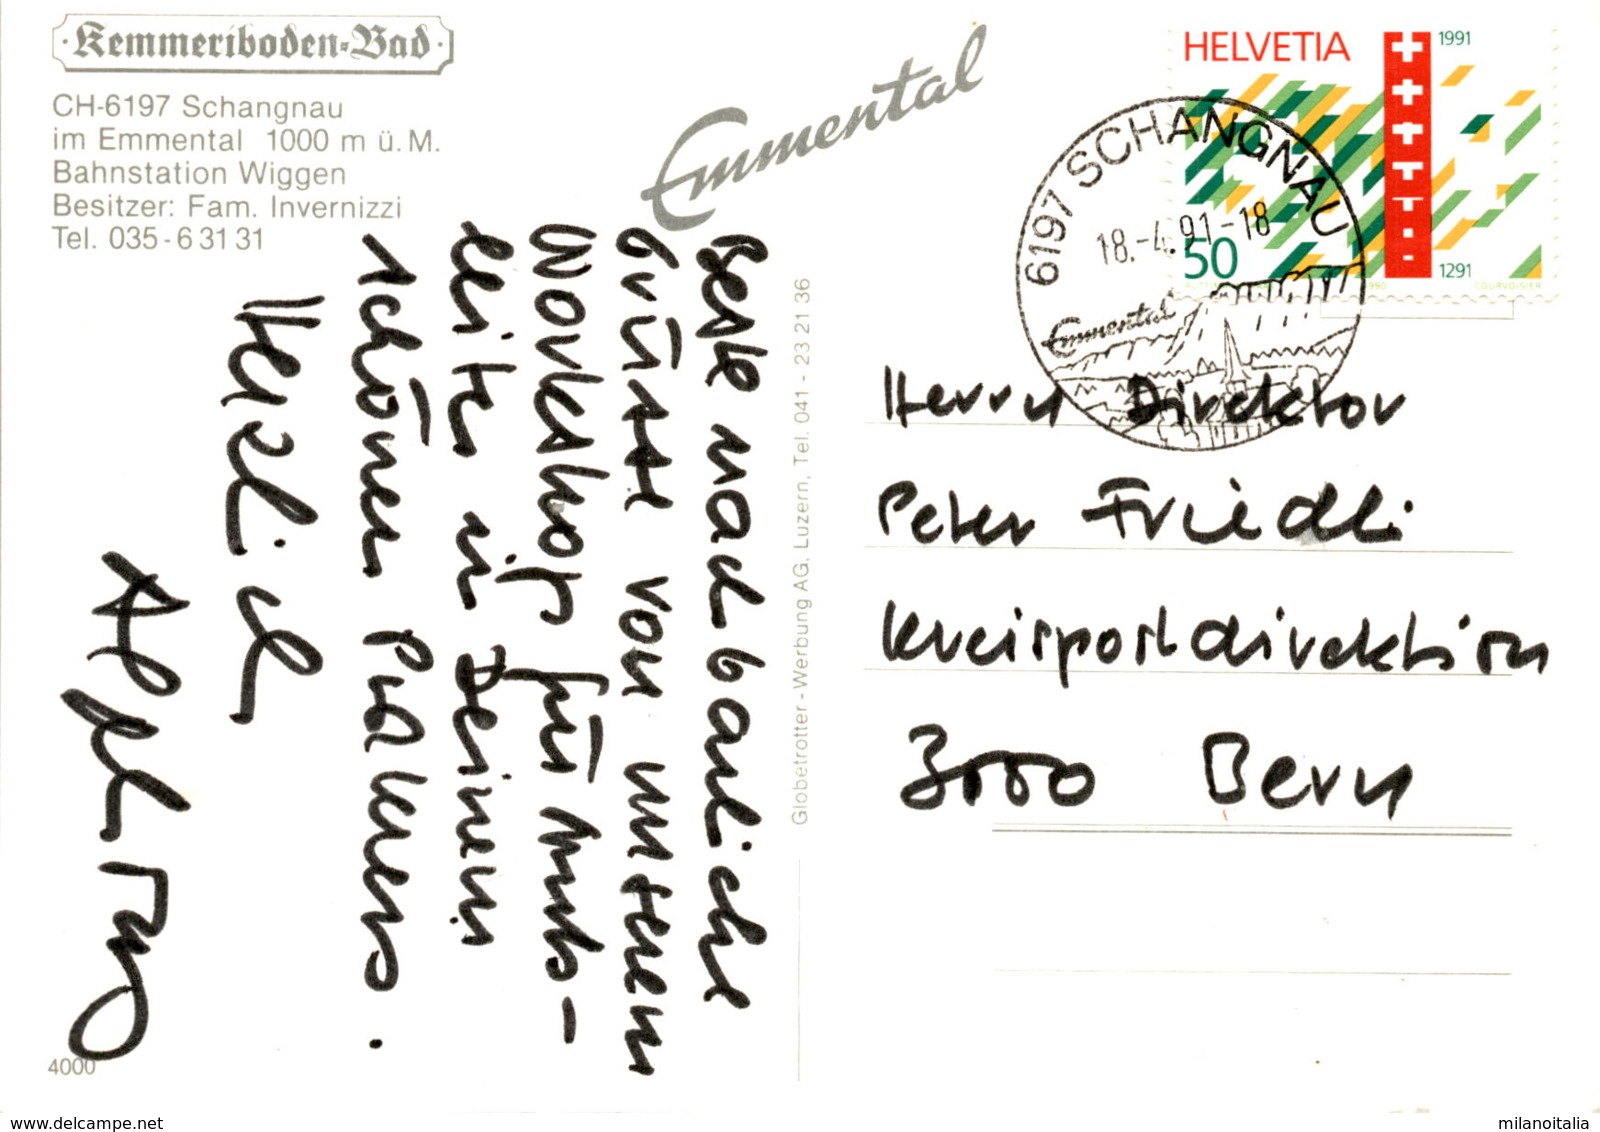 Kemmeriboden-Bad
CH-6197 Schangnau
im Emmental 1000 m ü. M.
Bahnstation Wiggen
Besitzer: Fam. Invernizzi
Tel. 035-6 31 31
Emmental
HELVETIA
1991
50
1291
COURVOISIER
6197 SCHANGNAU
18.-4.91-18
Emmental
Beste nachbarliche
Grüsse von unserem
Workshop für Amts-
leiter in Deinem
schönen Pratens.
Herzlich
Globetrotter - Werbung AG, Luzern, Tel. 041 - 23 21 36
Herrn Direktor
Peter Friedli
Kreispostdirektion
3000 Bern
4000
milanoitalia